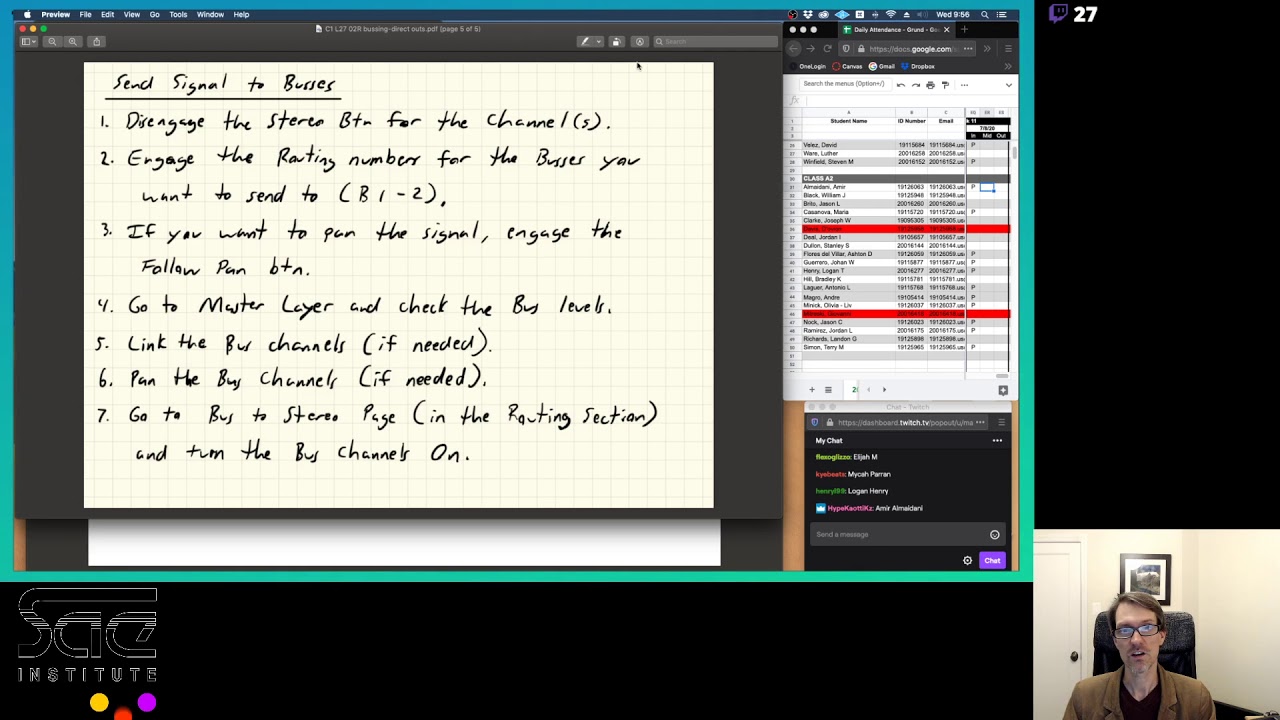 Preview File Edit View Go Tools Window Help
Wed 9:56
27
C1 L27 02R bussing-direct outs.pdf (page 5 of 5)
Search
Send Signal to Busses
1. Disengage the Stereo Btn for the Channel(s).
Engage the Routing numbers for the Busses you
want to send to (B 1-2).
3. If you want to pan the signal, engage the
Follow Pan btn.
4. Go to Master Layer and check the Bus levels.
5. Link the Bus channels (if needed).
6. Pan the Bus Channels (if needed).
7. Go to Bus to Stereo Page (in the Routing Section)
and turn the Bus Channels On.
Daily Attendance - Grund - Go
https://docs.google.com/
OneLogin Canvas Gmail Dropbox
Search the menus (Option+/)
Student Name ID Number Email
7/8/20
In Mid Out
Velez, David 19115684 19115684.us P
Ware, Luther 20016258 20016258.us
Winfield, Steven M 20016152 20016152.us P
CLASS A2
Almaidani, Amir 19126063 19126063.us P
Black, William J 19125948 19125948.us
Brito, Jason L 20016260 20016260.us
Casanova, Maria 19115720 19115720.us P
Clarke, Joseph W 19095305 19095305.us
Deal, Jordan I 19105657 19105657.us
Dullon, Stanley S 20016144 20016144.us
Flores del Villar, Ashton D 19126059 19126059.us P
Guerrero, Johan W 19115877 19115877.us P
Henry, Logan T 20016277 20016277.us P
Hill, Bradley K 19115781 19115781.us
Laguer, Antonio L 19113768 19113768.us P
Magro, Andre 19105414 19105414.us P
Minick, Olivia - Liv 19126037 19126037.us P
Nock, Jason C 19126023 19126023.us P
Ramirez, Jordan L 20016175 20016175.us P
Richards, Landon G 19125898 19125898.us
Simon, Terry M 19125965 19125965.us P
Chat - Twitch
https://dashboard.twitch.tv/popout/u/ma
My Chat
flexoglizzo: Elijah M
kyebeats: Mycah Parran
henryl99: Logan Henry
HypeKaottiKz: Amir Almaidani
Send a message
Chat
SAE
INSTITUTE